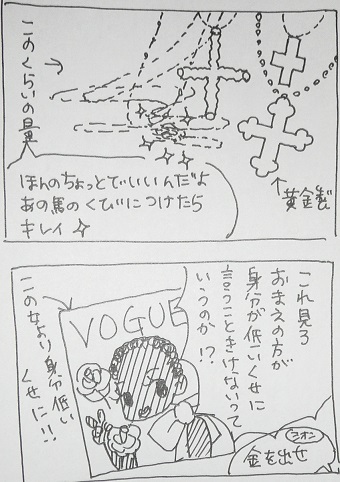 このくらいの量
ほんのちょっとでいいんだよ
あの馬のくびにつけたら
キレイ
黄金製
これ見ろ
おまえの方が
身分が低いくせに
言うこときけないって
いうのか!?
VOGUE
この女より身分低い
くせに!!
シオン
金を出せ